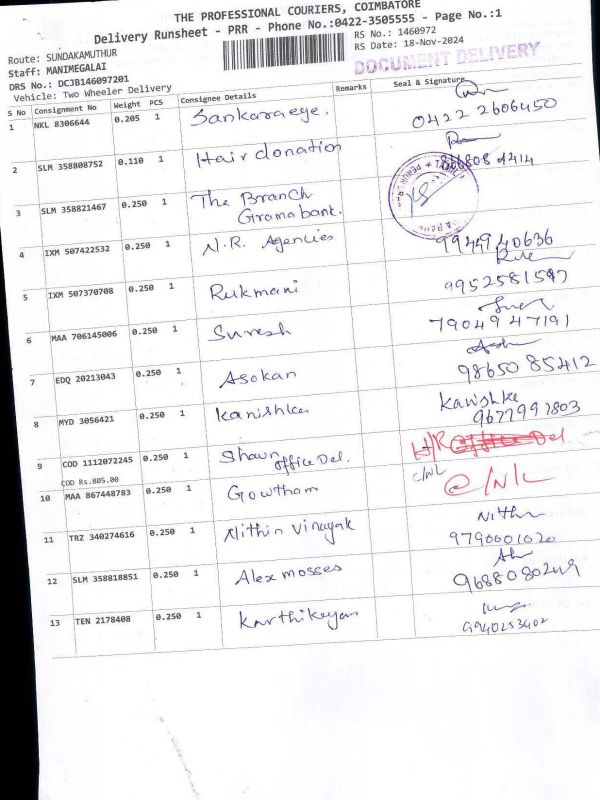 THE PROFESSIONAL COURIERS, COIMBATORE
Delivery Runsheet - PRR - Phone No.:0422-3505555 - Page No.:1
Route: SUNDAKAMUTHUR
Staff: MANIMEGALAI
DRS No.: DCJB146097201
Vehicle: Two Wheeler Delivery
RS No.: 1460972
RS Date: 18-Nov-2024
DOCUMENT DELIVERY
S No Consignment No Weight PCS Consignee Details Remarks Seal & Signature
1 NKL 8306644 0.205 1 0422 2606450
2 SLM 358808752 0.110 1 Hair donation
3 SLM 358821467 0.250 1 The Branch
Gramabank.
4 IXM 507422532 0.250 1 N.R. Agencies 9944940636
5 IXM 507370708 0.250 1 Rukmani
6 MAA 706145006 0.250 1 Suresh 79049 47191
7 EDQ 20213043 0.250 1 Asokan 98650 85412
8 MYD 3056421 0.250 1 Kanishka Kanishka
9677997803
9 COD 1112072245 0.250 1 Shawn
office Del.
COD Rs.805.00
10 MAA 867448783 0.250 1 Gowtham C/NL
C/NL
11 TRZ 340274616 0.250 1 Nithin Vinayak
9790001020
12 SLM 358818851 0.250 1 Alex mosses
9688080249
13 TEN 2178408 0.250 1 Karthikeyan
9940253402